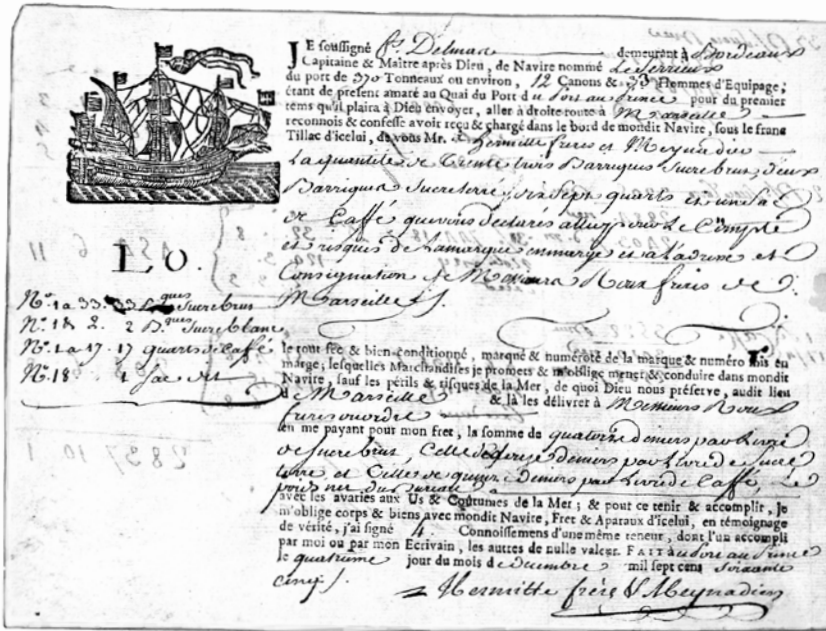 JE soussigné Pre. Delmas demeurant à Bordeaux
Capitaine & Maître après Dieu, de Navire nommé Le Serrieux
du port de 370 Tonneaux ou environ, 12 Canons & 33 Hommes d'Equipage;
étant de present amaré au Quai du Port du Port au Prince pour du premier
tems qu'il plaira à Dieu envoyer, aller à droite route à Marseille
reconnois & confesse avoir reçu & chargé dans le bord de mondit Navire, sous le franc
Tillac d'icelui, de vous Mr. Hermitte freres et Meynadier
La quantité de Trente trois Barriques Sucre brut, deux
Barriques Sucre terré, dix Sept quarts et un Sac
de Caffé que vous declarés alluy pour Le Compte
et risques de La marque en marge et a l'adresse et
Consignation de Messieurs Roux freres de
Marseille
LO.
No. 1 a 33. 33 Bques Sucre brut
No. 1 & 2. 2 Bques Sucre blanc
No. 1 a 17. 17 quarts de Caffé
No. 18 1 Sac dit
le tout sec & bien conditionné, marqué & numéroté de la marque & numéro mis en
marge, lesquelles Marchandises je promets & m'oblige mener & conduire dans mondit
Navire, sauf les périls & risques de la Mer, de quoi Dieu nous préserve, audit lieu
de Marseille & là les délivrer à Messieurs Roux
freres ou ordre
en me payant pour mon fret, la somme de quatorze deniers par Livre
de Sucre brut, Celle de seize deniers par Livre de Sucre
terré et Celle de quinze deniers par Livre de Caffé, Le
poids net du bureau
avec les avaries aux Us & Coûtumes de la Mer; & pour ce tenir & accomplir, je
m'oblige corps & biens avec mondit Navire, Fret & Aparaux d'icelui, en témoignage
de vérité, j'ai signé 4. Connoissemens d'une même teneur, dont l'un accompli
par moi ou par mon Ecrivain, les autres de nulle valeur. FAIT au Port au Prince
le quatrieme jour du mois de decembre mil sept cens Soixante
cinq
Hermitte frères & Meynadier